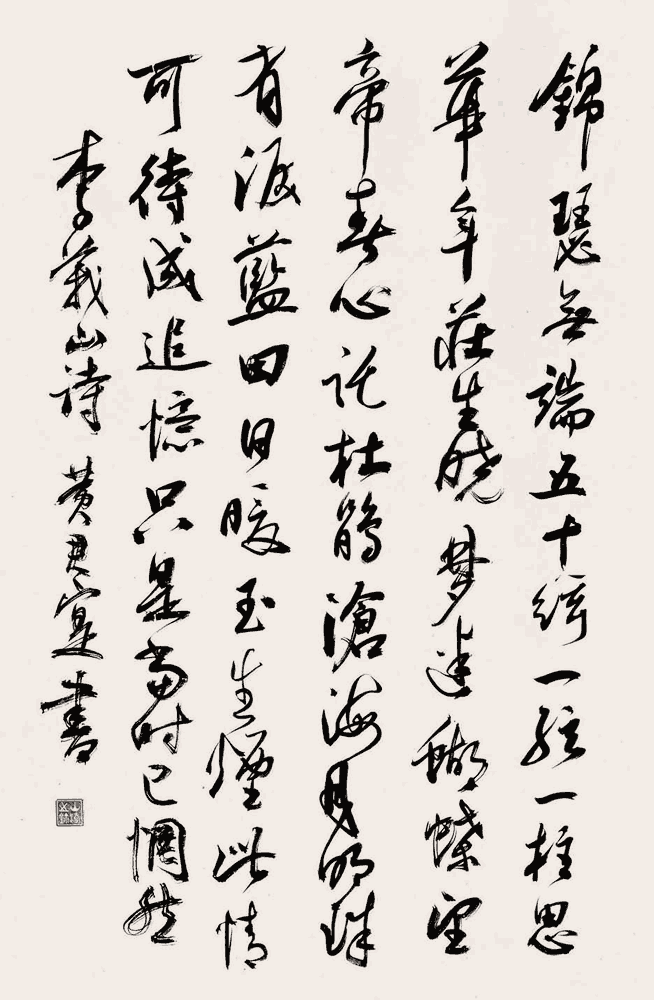 錦瑟無端五十絃一絃一柱思
華年莊生曉夢迷蝴蝶望
帝春心託杜鵑滄海月明珠
有淚藍田日暖玉生煙此情
可待成追憶只是當时已惘然
李義山詩 黄君寔書